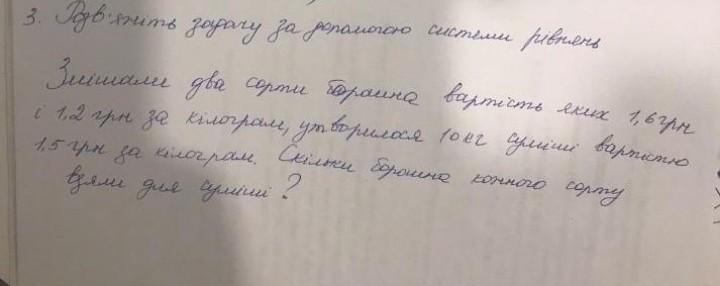 3. Розв'яжіть задачу за допомогою системи рівнянь
Змішали два сорти борошна вартість яких 1,6 грн
і 1,2 грн за кілограм, утворилося 10 кг суміші вартістю
1,5 грн за кілограм. Скільки борошна кожного сорту
взяли для суміші?